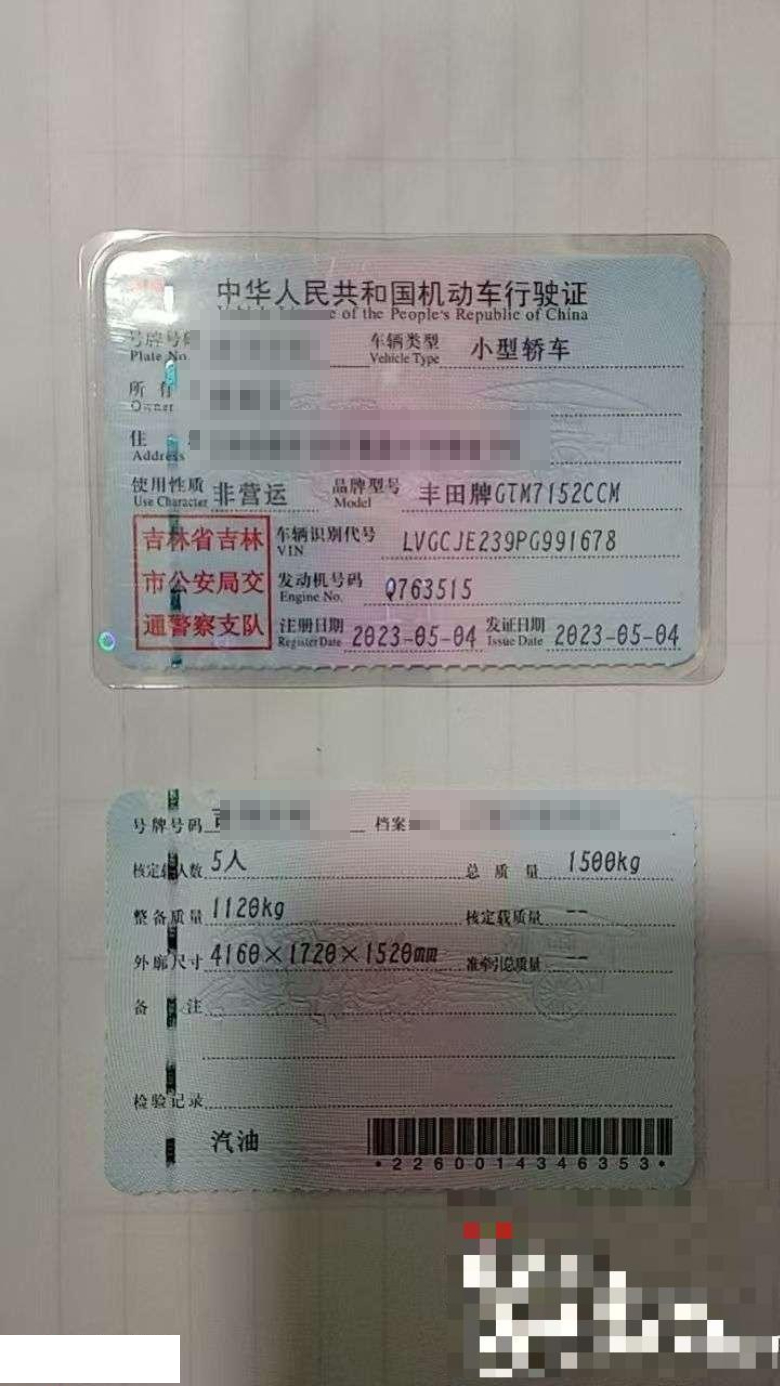 中华人民共和国机动车行驶证
of the People's Republic of China
号牌号码 车辆类型 小型轿车
Plate No. Vehicle Type
所有
Owner
住
Address
使用性质 非营运 品牌型号 丰田牌GTM7152CCM
Use Character Model
吉林省吉林 车辆识别代号 LVGCJE239PG991678
VIN
市公安局交 发动机号码 Q763515
Engine No.
通警察支队 注册日期 2023-05-04 发证日期 2023-05-04
Register Date Issue Date
号牌号码 档案
核定载人数 5人 总质量 1500kg
整备质量 1120kg 核定载质量 --
外廓尺寸 4160×1720×1520mm 准牵引总质量 --
备注
检验记录
汽油
*2260014346353*